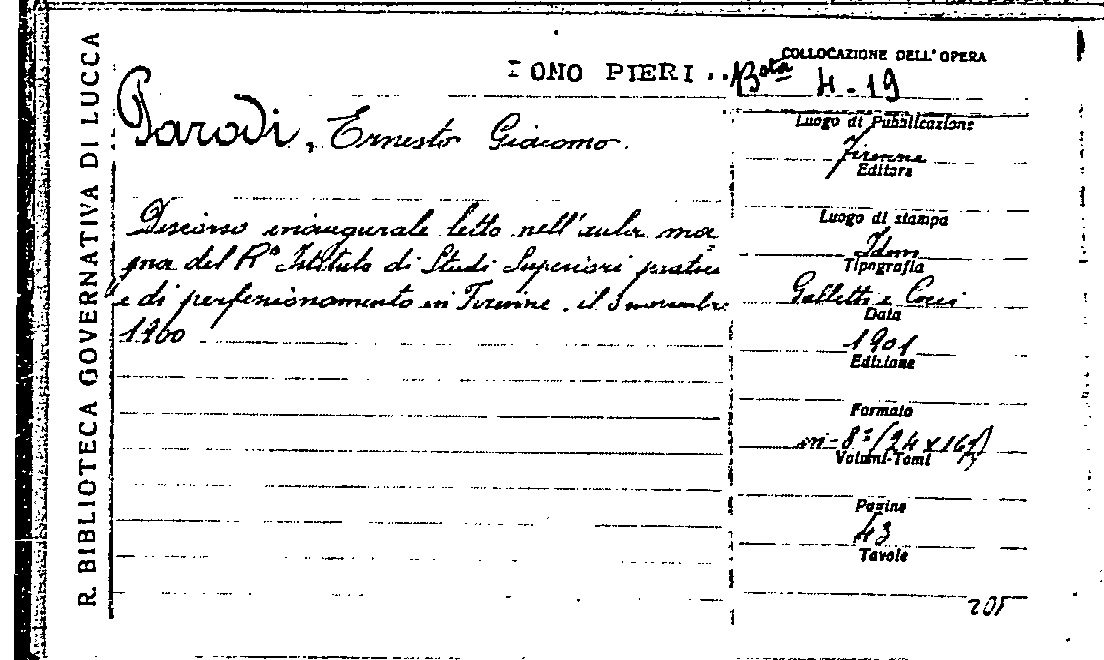 R. BIBLIOTECA GOVERNATIVA DI LUCCA
ONO PIERI
COLLOCAZIONE DELL'OPERA
Bta 4-19
Parodi, Ernesto Giacomo.
Discorso inaugurale letto nell'aula ma
gna del R° Istituto di Studi Superiori pratici
e di perfezionamento in Firenze, il 5 novembre
1900
Luogo di Pubblicazione
Firenze
Editore
Luogo di stampa
Idem
Tipografia
Galletti e Cocci
Data
1901
Edizione
Formato
in-8° (24x16½)
Volumi-Tomi
Pagine
43
Tavole